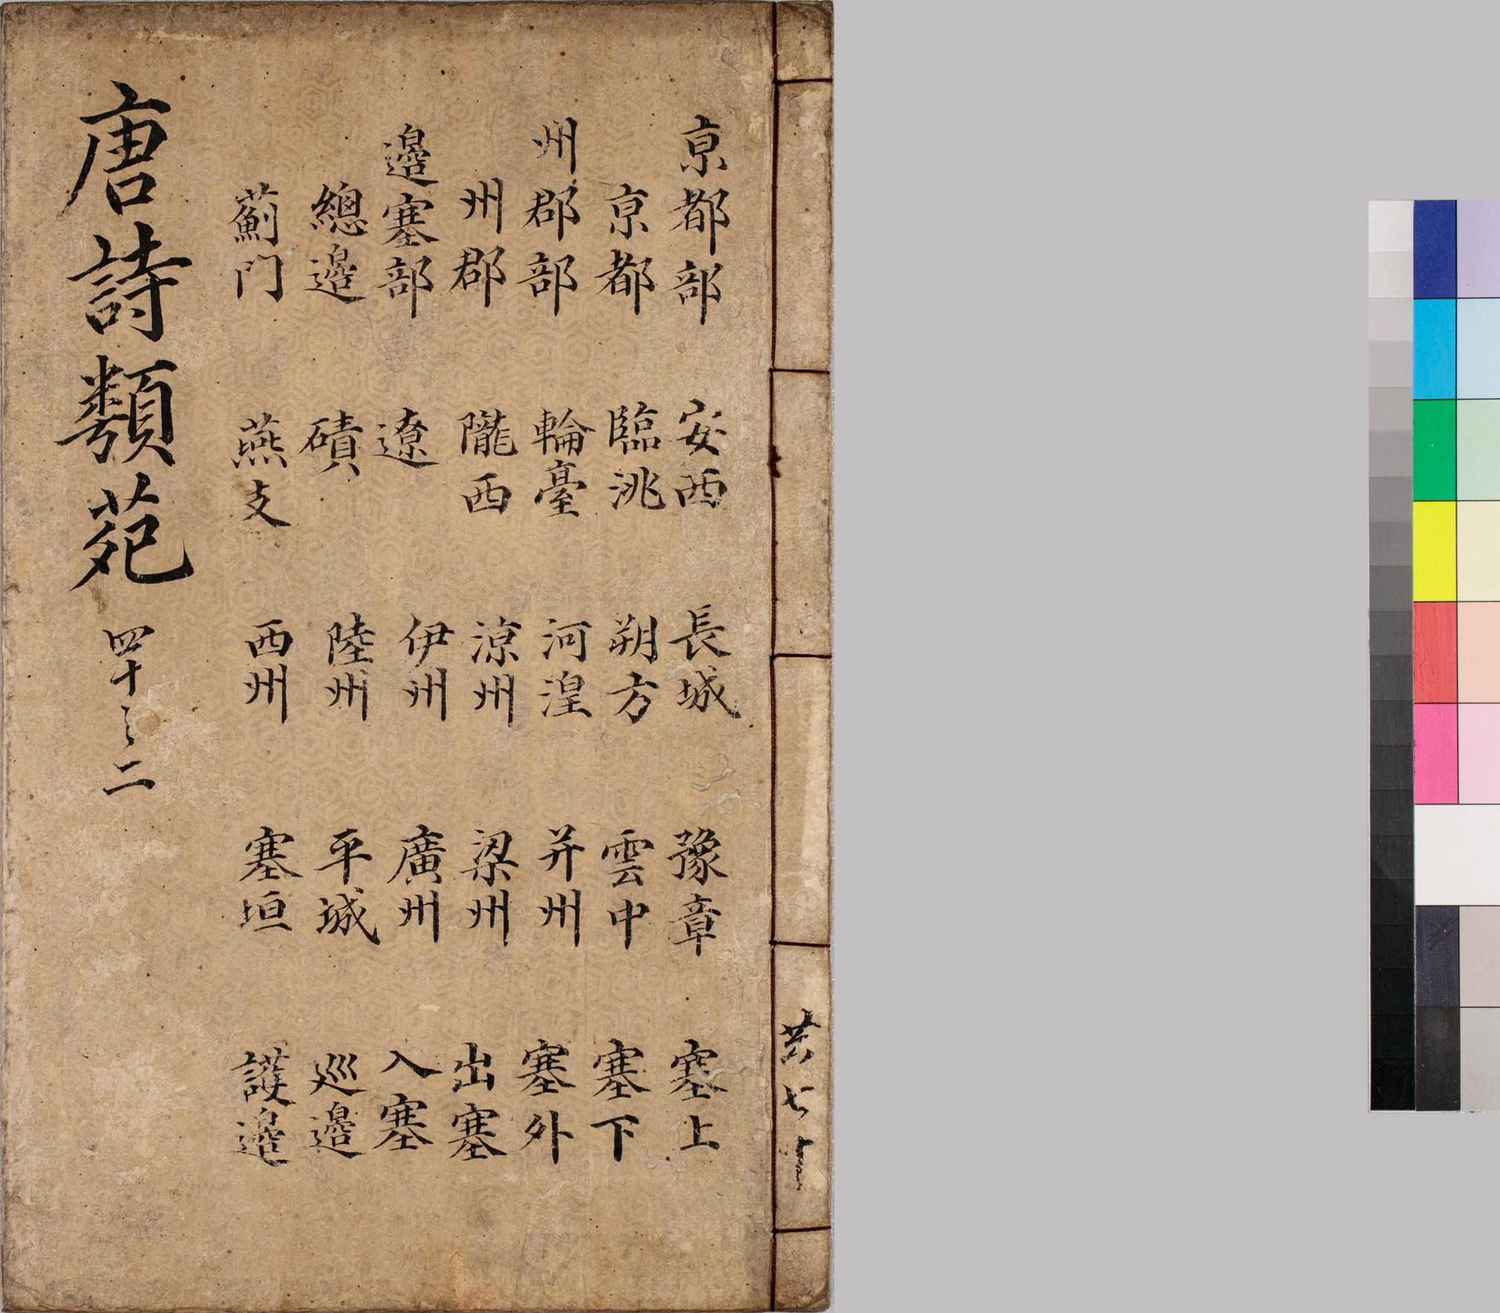 亰都部
亰都
州郡部
州郡
邊塞部
總邊
薊門
安西
臨洮
輪臺
隴西
遼
磧
燕支
長城
朔方
河湟
涼州
伊州
陸州
西州
豫章
雲中
并州
梁州
廣州
平城
塞垣
塞上
塞下
塞外
出塞
入塞
巡邊
護邊
唐詩類苑
四十之二
共七十